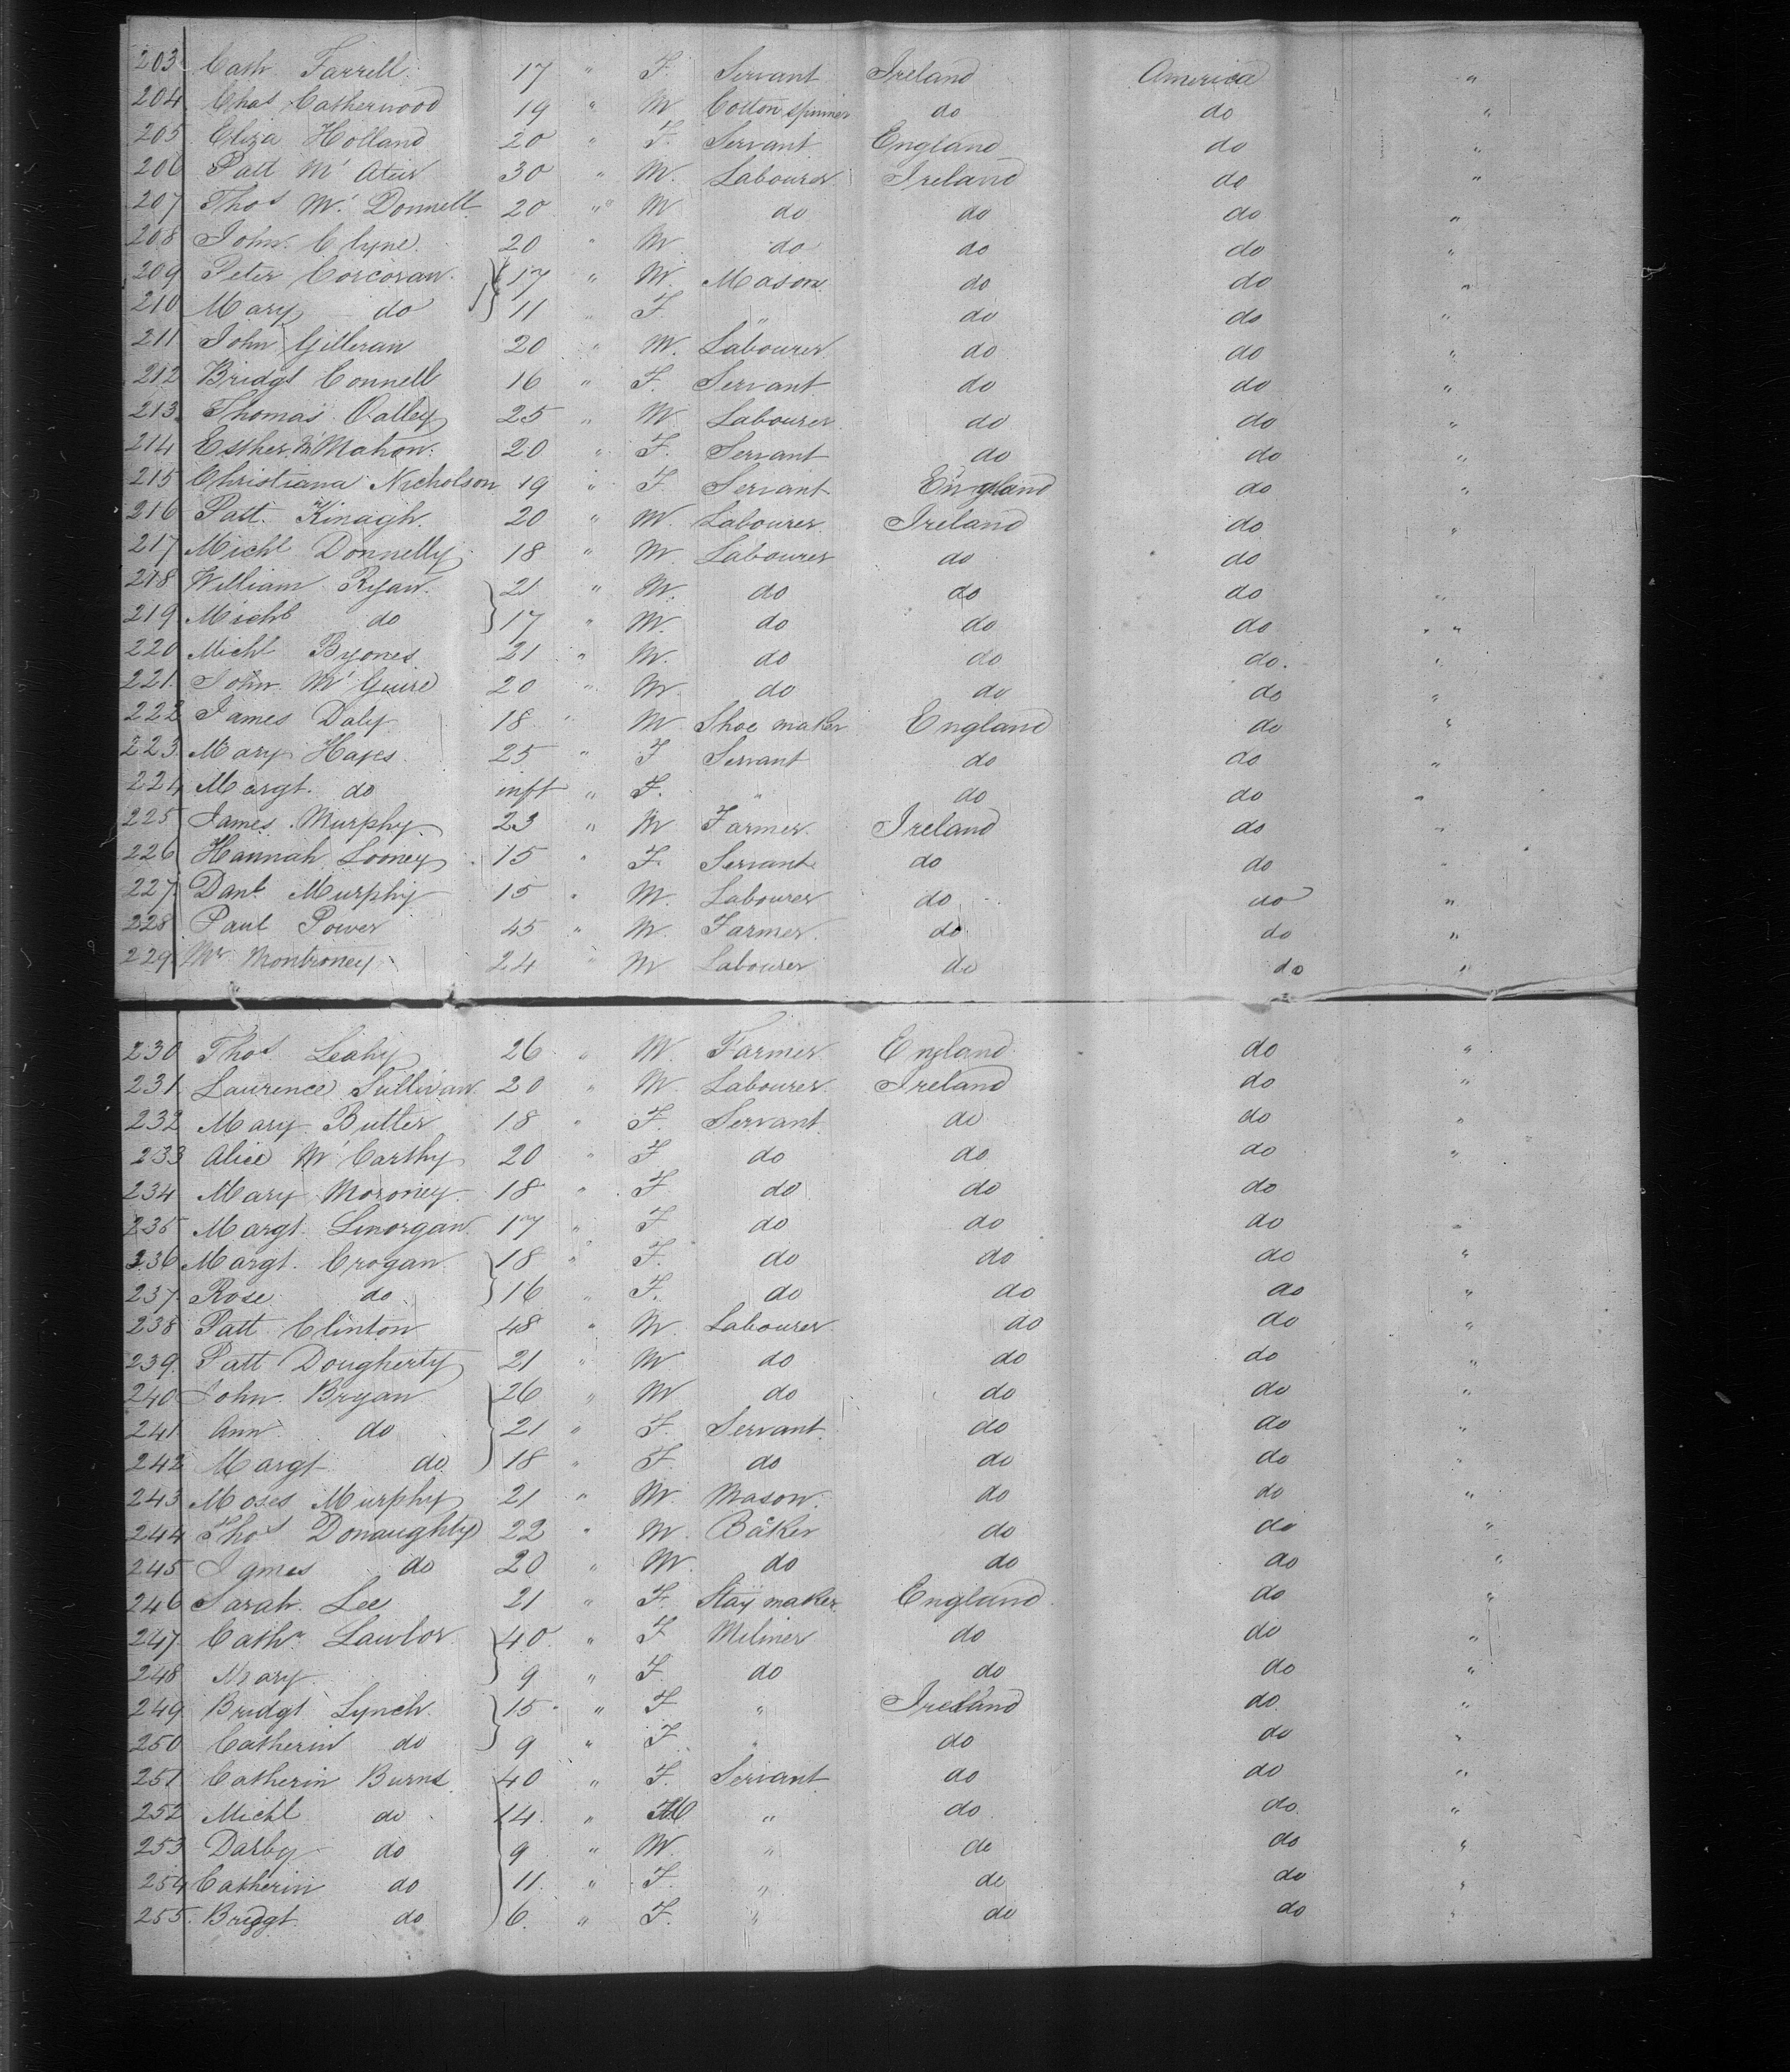 203 Cath Farrell. 17 " F. Servant Ireland America "
204 Chas Catherwood 19 " M Cotton spinner do do "
205 Eliza Holland 20 " F. Servant England do "
206 Patt Mc 30 " M. Labourer Ireland do "
207 Thos Mc Donnell 20 " M do do do "
208 John Clyne 20 " M do do do "
209 Peter Corcoran 17 " M. Mason do do "
210 Mary do 11 " F. " do do "
211 John Gilleran 20 " M. Labourer do do "
212 Bridgt Connell 16 " F. Servant do do "
213 Thomas 25 " M Labourer do do "
214 Esther McMahon. 20 " F. Servant do do "
215 Christiana Nicholson 19 " F Servant England do "
216 Patt. Kinagh. 20 " M. Labourer Ireland do "
217 Michl Donnelly 18 " M Labourer do do
218 William Ryan. 21 " M. do do do "
219 Michl do 17 " M. do do do "
220 Michl Byones 21 " M. do do do. "
221. John Mc Guire 20 " M. do do do "
222 James Daly 18 " M Shoe maker England do "
223 Mary Hayes. 25 " F Servant do do "
224 Margt. do inft " F. " do do "
225 James Murphy 23 " M Farmer Ireland do "
226 Hannah Looney 15 " F Servant do do "
227 Danl Murphy 15 " M. Labourer do do "
228 Paul Power 45 " M. Farmer. do do "
229 Mr Montroney 24 " M Labourer do do "
230 Thos Leahy 26 " M. Farmer England do "
231 Laurence Sullivan 20 " M. Labourer Ireland do "
232 Mary Butler 18 " F. Servant do do "
233 Alice Mc Carthy 20 " F do do do "
234 Mary Moroney 18 " F do do do
235 Margt. Linorgan 17 " F do do do "
236 Margt. Crogan 18 " F. do do do "
237 Rose do 16 " F. do do do "
238 Patt Clinton 48 " M. Labourer do do "
239 Patt Dougherty 21 " M do do do "
240 John Bryan 26 " M do do do "
241 Ann do 21 " F. Servant do do "
242 Margt do 18 " F. do do do "
243 Moses Murphy 21 " M. Mason. do do "
244 Thos Donaughty 22 " M. Baker do do "
245 James do 20 " M. do do do "
246 Sarah Lee 21 " F. Stay maker England do "
247 Cathn Lawlor 40 " F Miliner do do "
248 Mary 9 " F. do do do "
249 Bridgt Lynch. 15 " F " Ireland do "
250 Catherin do 9 " F " do do "
251 Catherin Burns 40 " F. Servant do do "
252 Michl do 14 " M " do do "
253 Darby do 9 " M. " do do "
254 Catherin do 11 " F. " do do "
255 Bridgt do 6 " F. " do do "